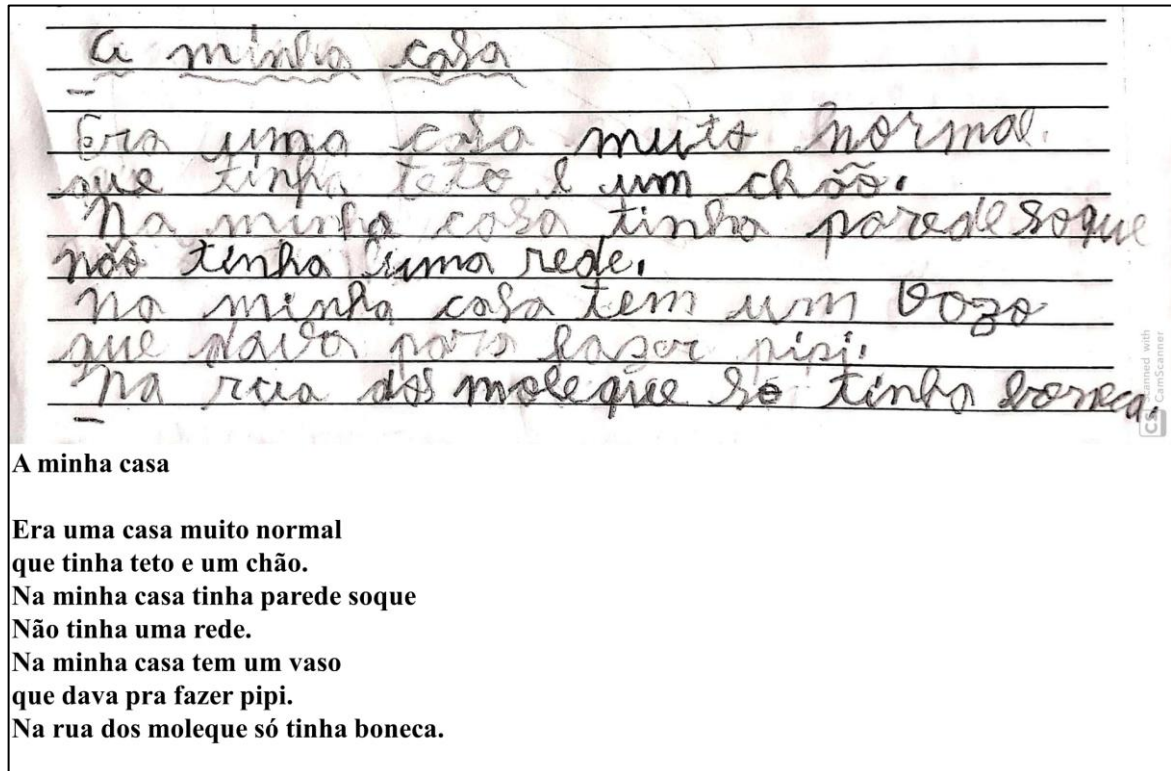 A minha casa
Era uma casa muito normal.
que tinha teto e um chão.
Na minha casa tinha parede soque
não tinha uma rede.
Na minha casa tem um vozo
que dava para fazer pipi.
Na rua dos moleque so tinha boneca.
Scanned with
CS CamScanner
A minha casa
Era uma casa muito normal
que tinha teto e um chão.
Na minha casa tinha parede soque
Não tinha uma rede.
Na minha casa tem um vaso
que dava pra fazer pipi.
Na rua dos moleque só tinha boneca.